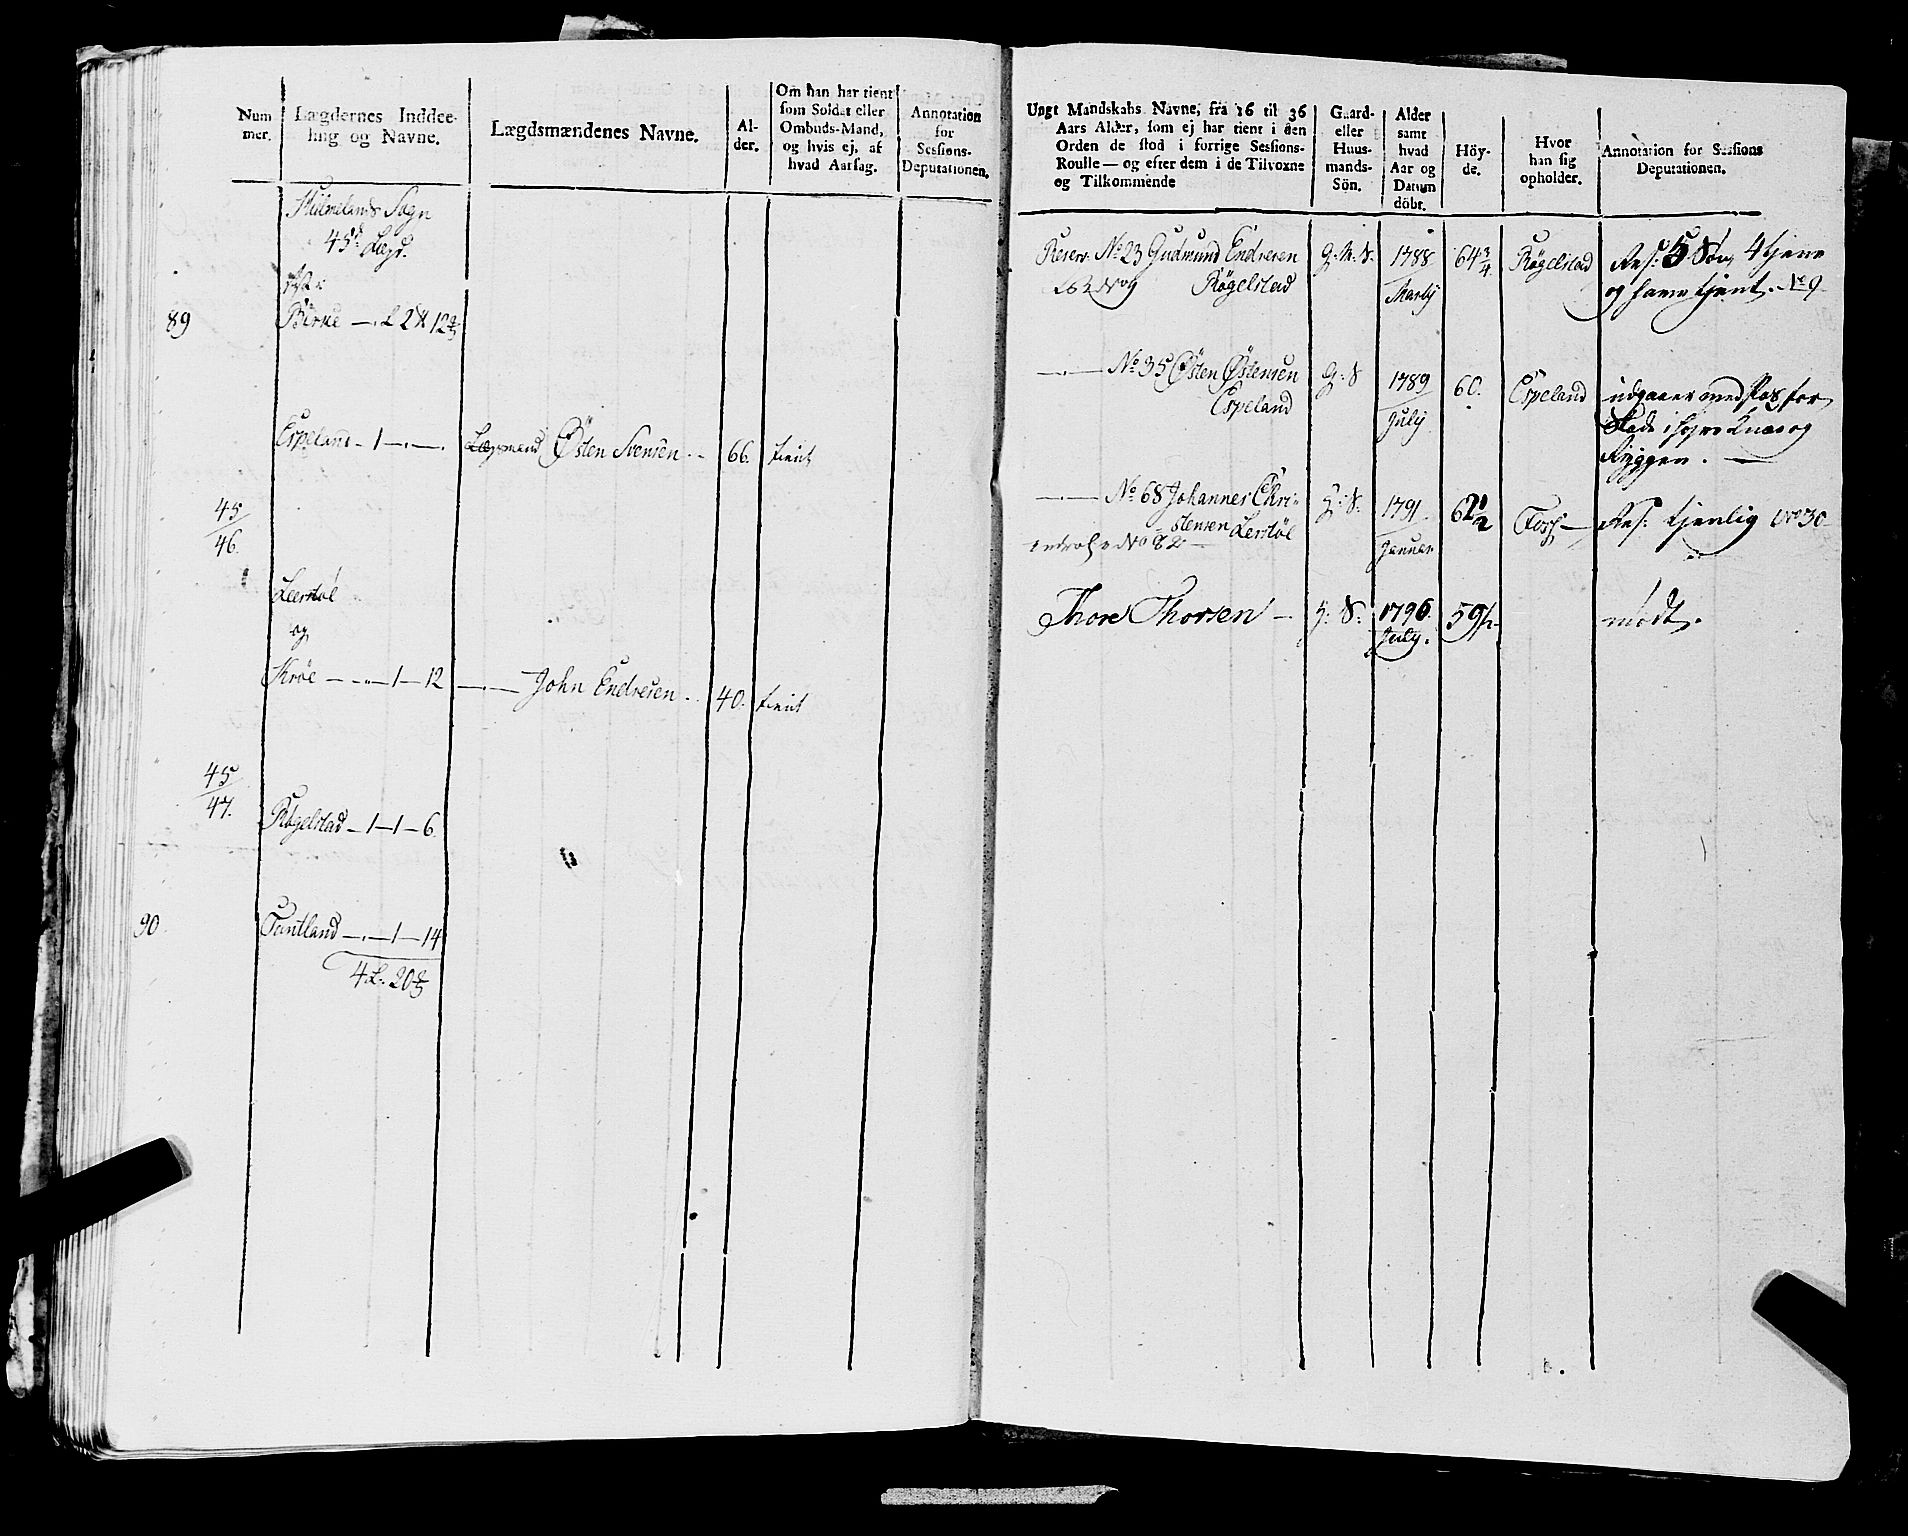 Num
mer.
Lægdernes Inddee-
ling og Navne.
Lægdsmændenes Navne.
Al-
der.
Om han har tient
som Soldat eller
Ombuds-Mand,
og hvis ej, af
hvad Aarsag.
Annotation
for
Sessions-
Deputationen.
Hielmelands Sogn
45d Lægd.
89
Birke — 2 12
Espeland - 1 — Lægsmand Østen Svensen 66. tient
45
46.
Leerstøl
og
Krøe — 1 — 12 — John Endresen 40. tient
45
47.
Røgelstad — 1 — 1 — 6
90
Tuntland — 1 — 14
4 L. 20
Ungt Mandskabs Navne, fra 16 til 36
Aars Alder, som ej har tient i den
Orden de stod i forrige Sessions-
Roulle — og efter dem i de Tilvoxne
og Tilkommende
Gaard-
eller
Huus-
mands-
Sön.
Alder
samt
hvad
Aar og
Datum
döbt.
Höy-
de.
Hvor
han sig
opholder.
Annotation for Sessions
Deputationen.
Reserv. No 23 Gudmund Endresen
Røgelstad
1788
Martij
64 3/4
Røgelstad
Res: 5 Søn, 4 tjene
og have tjent. No 9
— No 35 Østen Østensen
Espeland
G: S
1789
July
60.
Espeland
udgaaer med Pas for
Skade i høyre Knæe og
Ryggen. —
— No 68 Johannes Chri-
stensen Lerstøl
No 82
G: S:
1791
Januar
62 1/2
Foss —
Res: tjenlig No 30
Thore Thorsen —
G: S:
1796.
July.
59 1/2
mødt.